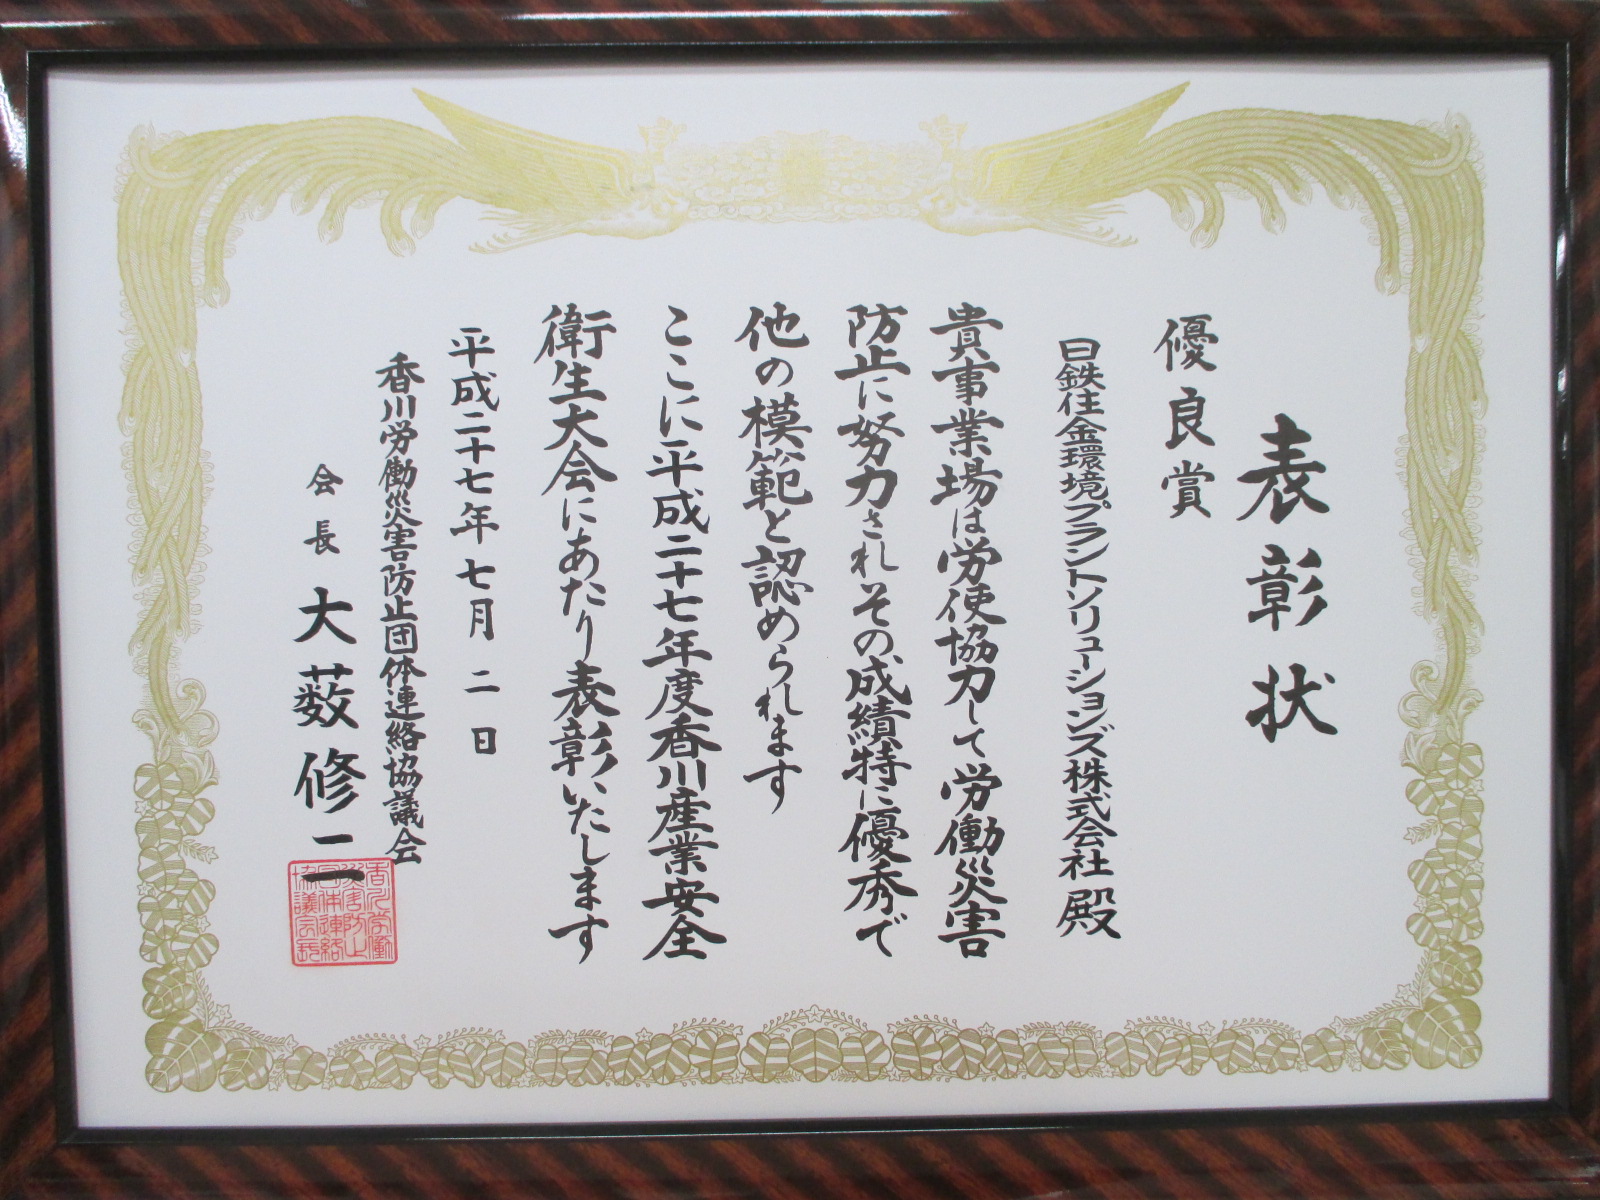 表彰状
優良賞
日鉄住金環境プラントソリューションズ株式会社殿
貴事業場は労使協力して労働災害
防止に努力されその成績特に優秀で
他の模範と認められます
ここに平成二十七年度香川産業安全
衛生大会にあたり表彰いたします
平成二十七年七月二日
香川労働災害防止団体連絡協議会
会長 大薮修二
香川労働
災害防止
団体連絡
協議会長